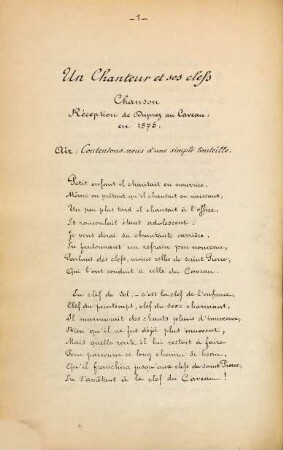 — 1 —
Un Chanteur et ses clefs
Chanson
Réception de Duprez au Caveau.
en 1876.
Air : Contentons-nous d'une simple bouteille.
Petit enfant il chantait en nourrice,
Même on prétend qu'il chantait en naissant,
Un peu plus tard il chantait à l'office,
Et roucoulait étant adolescent.
Je vous dirai sa chantante carrière,
En fredonnant un refrain peu nouveau,
Parlant des clefs, moins celles de saint Pierre,
Qui l'ont conduit à celle du Caveau.
La clef de Sol, — c'est la clef de l'enfance,
Clef du printemps, clef du sexe charmant,
Il murmurait des chants pleins d'innocence,
Bien qu'il ne fut déjà plus innocent,
Mais quelle route il lui restait à faire
Pour parcourir ce long chemin si beau,
Qu'il franchira jusqu'aux clefs de saint Pierre,
En s'arrêtant à la clef du Caveau !